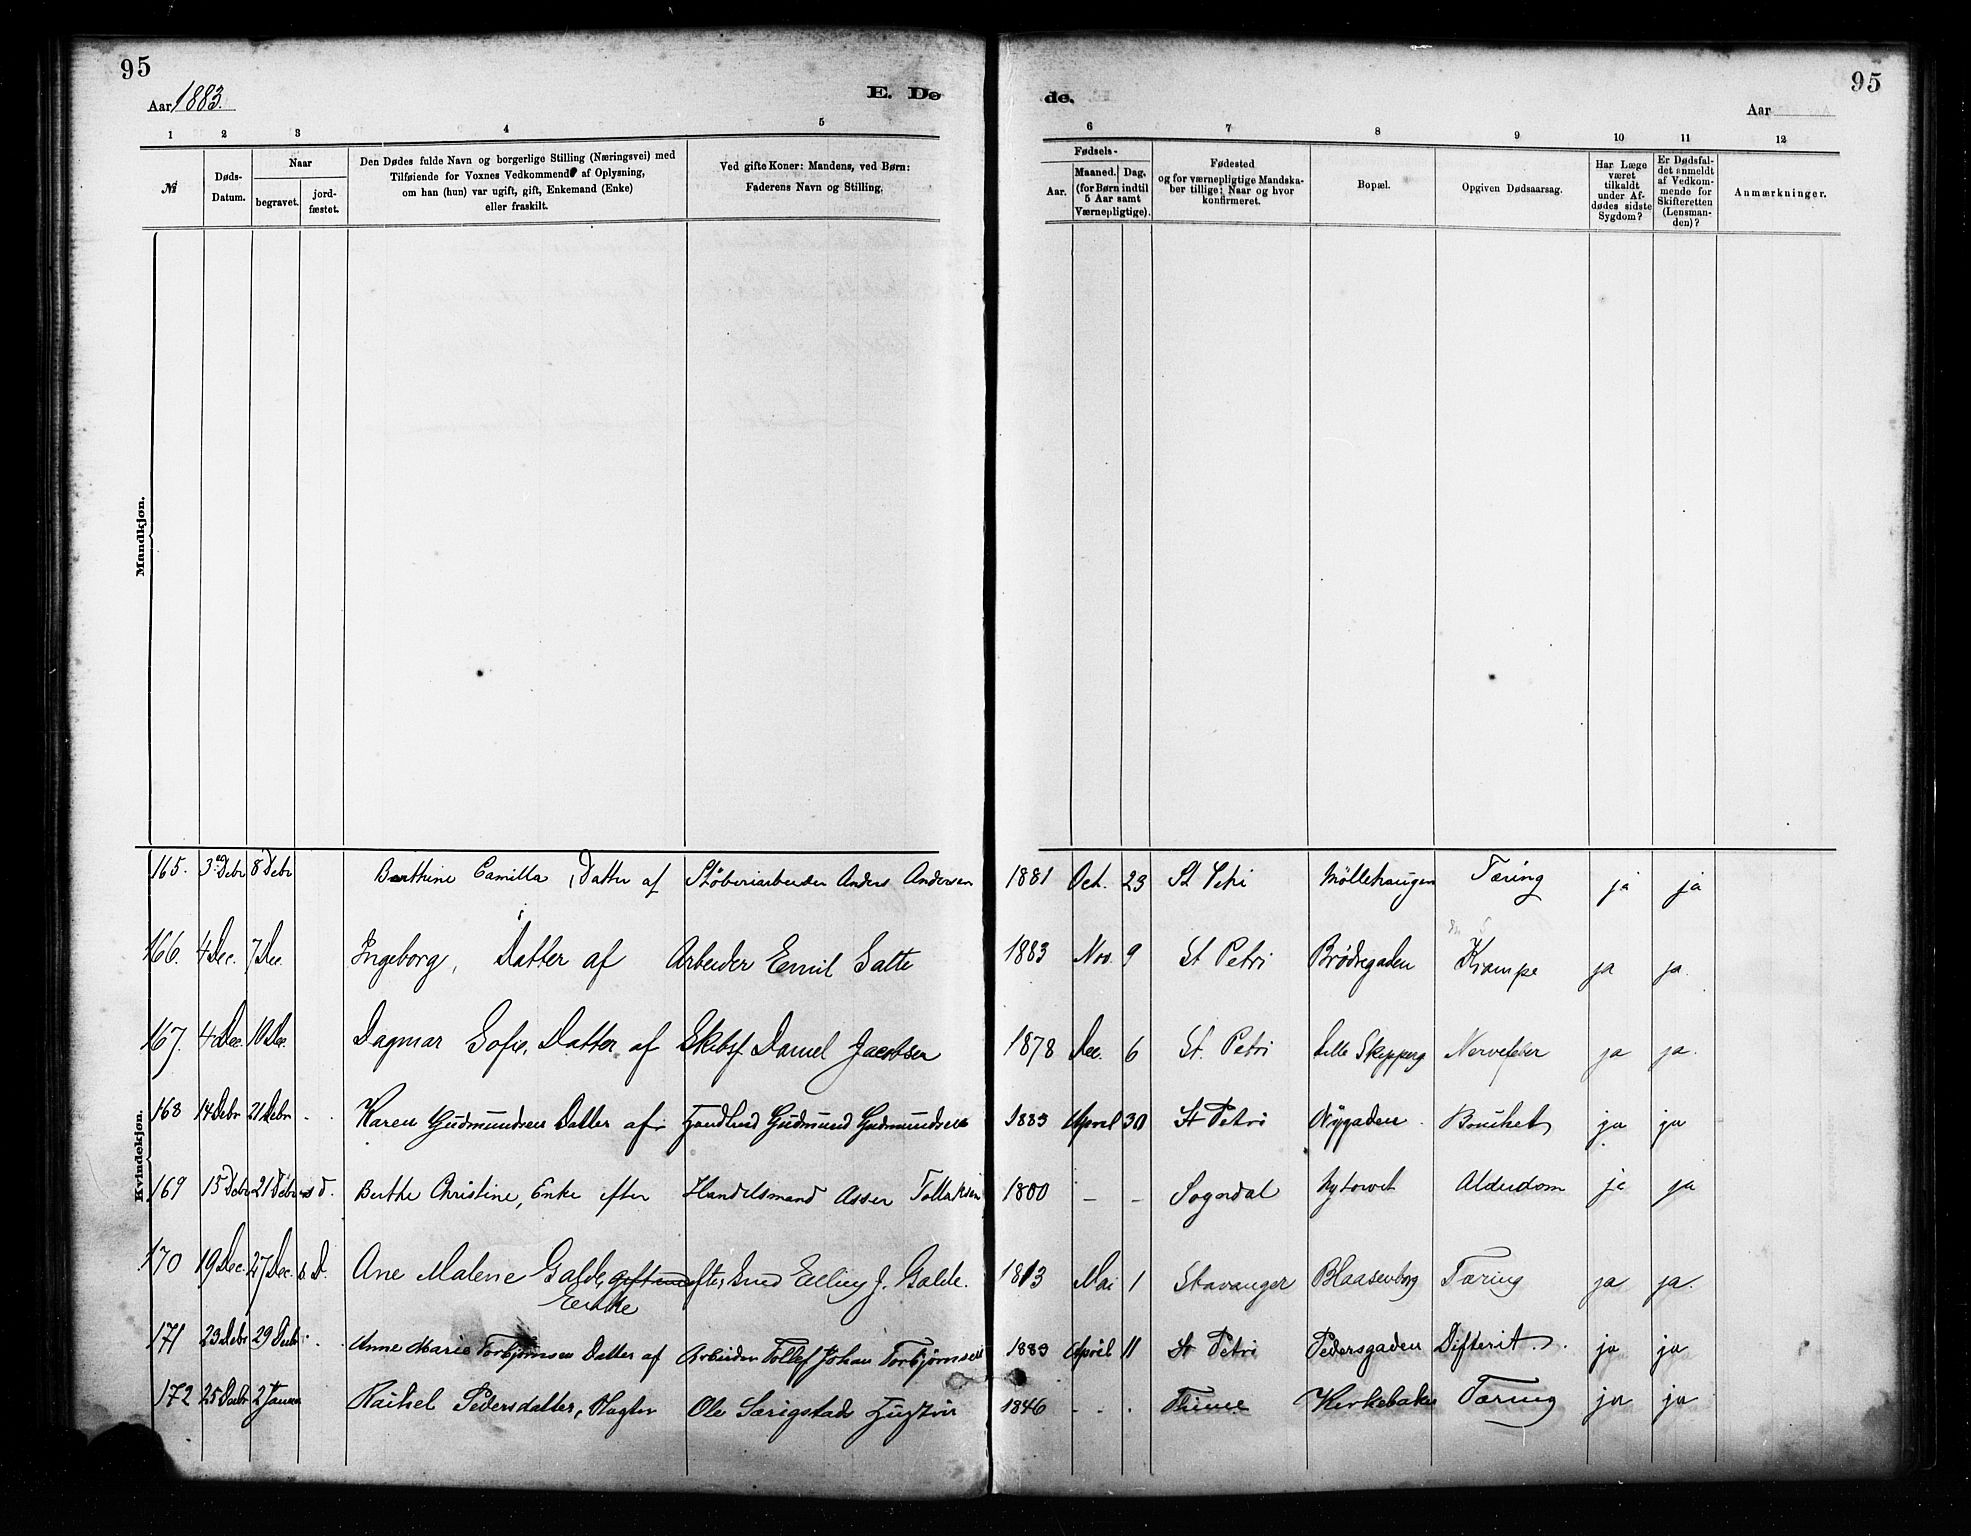 95
95
Aar 1883.
E. Dø
de.
Aar
1 2 3 4 5 6 7 8 9 10 11 12
№
Døds-
Datum.
Naar
begravet.
jord-
fæstet.
Den Dødes fulde Navn og borgerlige Stilling (Næringsvei) med
Tilføiende for Voxnes Vedkommende af Oplysning,
om han (hun) var ugift, gift, Enkemand (Enke)
eller fraskilt.
Ved gifte Koner: Mandens, ved Børn:
Faderens Navn og Stilling.
Fødsels-
Aar.
Maaned.
Dag,
(for Børn indtil
5 Aar samt
Værnepligtige).
Fødested
og for værnepligtige Mandska-
ber tillige: Naar og hvor
konfirmeret.
Bopæl.
Opgiven Dødsaarsag.
Har Læge
været
tilkaldt
under Af-
dødes sidste
Sygdom?
Er Dødsfal-
det anmeldt
af Vedkom-
mende for
Skifteretten
(Lensman-
den)?
Anmærkninger.
Mandkjøn.
Kvindekjøn.
165. 3 Debr 8 Debr Berthine Camilla, Datter af Støberiarbeider Anders Andersen 1881 Oct. 23 St Petri Möllehaugen Tæring ja ja
166. 4 Dec. 7 Dec. Ingeborg, Datter af Arbeider Emil Salte 1883 Nov. 9 St Petri Brødregaden Krampe ja ja.
167. 4 Dec. 10 Dec. Dagmar Sofie, Datter af Skibsf. Daniel Jacobsen 1878 Dec. 6 St. Petri Lille Skipperg Nervefeber ja ja.
168 14 Debr 21 Debr Karen Gudmundsen Datter af Gudmund Gudmundsen 1883 April 30 St Petri Nygaden ja ja
169 15 Debr 21 Debr s d. Berthe Christine, Enke efter Handelsmand Asser Tollaksen 1800 – – Sogndal Nytorvet Alderdom ja ja
170 19 Dec. 27 Dec. s. D. Ane Malene Galde, efter J. Galde. 1813 Mai 1 Stavanger Blaasenborg Tæring ja ja.
Enke
171 23 Debr 29 Debr Anne Marie Torbjørnsen Datter af Arbeider Tollef Johan Torbjørnsen 1883 April 11 St Petri Pedersgaden Difterit. ja ja
172 25 Debr 2 Januar Rachel Pedersdatter, Ole Særigstads Hustru 1846 Thime Kirkebakken Tæring ja ja